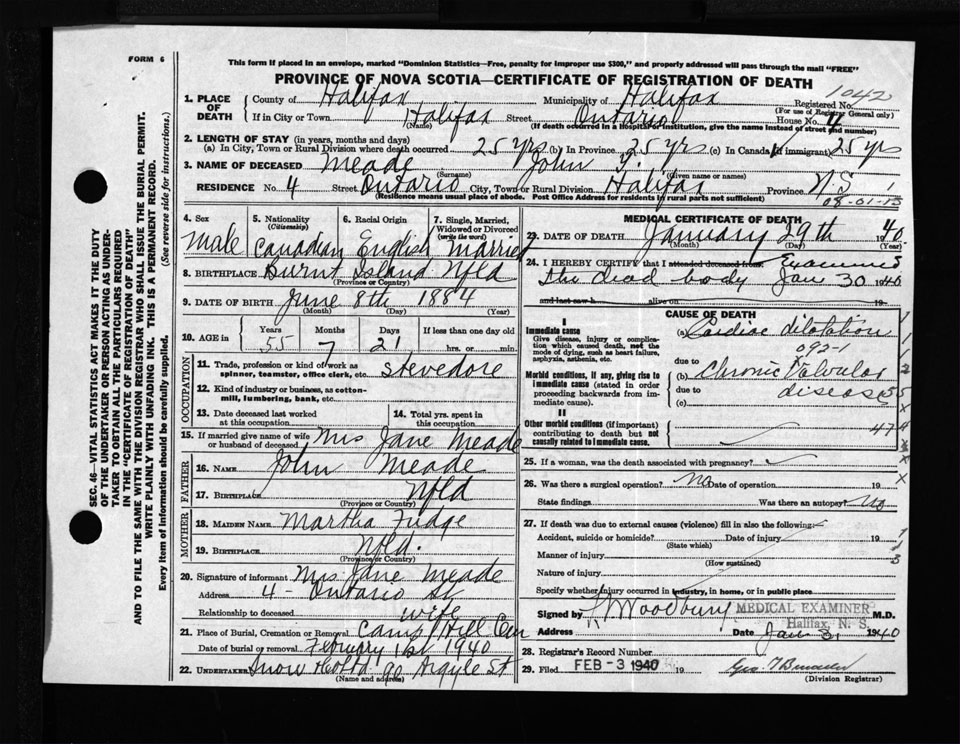 FORM 6
This form if placed in an envelope, marked "Dominion Statistics—Free, penalty for improper use $300," and properly addressed will pass through the mail "FREE"
PROVINCE OF NOVA SCOTIA—CERTIFICATE OF REGISTRATION OF DEATH
1042
1. PLACE OF DEATH
County of Halifax Municipality of Halifax Registered No.
(For use of Registrar General only)
If in City or Town Halifax Street Ontario House No. 4
(Name) (If death occurred in a Hospital or Institution, give the name instead of street and number)
2. LENGTH OF STAY (in years, months and days)
(a) In City, Town or Rural Division where death occurred 25 yrs (b) In Province 25 yrs (c) In Canada (if immigrant) 25 yrs
3. NAME OF DECEASED Meade John
(Surname) (Given name or names)
RESIDENCE No. 4 Street Ontario City, Town or Rural Division Halifax Province N S
(Residence means usual place of abode. Post Office Address for residents in rural parts not sufficient)
08-01-13
4. Sex Male
5. Nationality (Citizenship) Canadian
6. Racial Origin English
7. Single, Married, Widowed or Divorced (write the word) Married
8. BIRTHPLACE Burnt Island Nfld
(Province or Country)
9. DATE OF BIRTH June 8th 1884
(Month) (Day) (Year)
10. AGE in Years Months Days If less than one day old
55 7 21 hrs. or min.
OCCUPATION
11. Trade, profession or kind of work as spinner, teamster, office clerk, etc. stevedore
12. Kind of industry or business, as cotton-mill, lumbering, bank, etc.
13. Date deceased last worked at this occupation
14. Total yrs. spent in this occupation
15. If married give name of wife or husband of deceased Mrs Jane Meade
FATHER
16. NAME John Meade
17. BIRTHPLACE Nfld
(Province or Country)
MOTHER
18. MAIDEN NAME Martha Fudge
19. BIRTHPLACE Nfld.
(Province or Country)
20. Signature of informant Mrs Jane Meade
Address 4- Ontario St
Relationship to deceased wife
21. Place of Burial, Cremation or Removal Camp Hill Cem
Date of burial or removal February 1st 1940
22. UNDERTAKER Snow 90 Argyle St
(Name and address)
MEDICAL CERTIFICATE OF DEATH
23. DATE OF DEATH January 29th 1940
(Month) (Day) (Year)
24. I HEREBY CERTIFY that I attended deceased from Examined
the dead body Jan 30 1940
and last saw h alive on 19
CAUSE OF DEATH
I
Immediate cause
Give disease, injury or complication which caused death, not the mode of dying, such as heart failure, asphyxia, asthenia, etc.
(a) Cardiac dilatation
092-1
due to
Morbid conditions, if any, giving rise to immediate cause (stated in order proceeding backwards from immediate cause).
(b) Chronic Valvular
due to disease
(c)
II
Other morbid conditions (if important) contributing to death but not causally related to immediate cause.
47
25. If a woman, was the death associated with pregnancy?
26. Was there a surgical operation? no Date of operation 19
State findings Was there an autopsy? no
27. If death was due to external causes (violence) fill in also the following:
Accident, suicide or homicide? Date of injury 19
(State which)
Manner of injury
(How sustained)
Nature of injury
Specify whether injury occurred in industry, in home, or in public place
Signed by Woodbury MEDICAL EXAMINER M.D.
Halifax, N. S.
Address Date Jan 31 1940
28. Registrar's Record Number
29. Filed FEB -3 1940 19
(Division Registrar)
SEC. 46—VITAL STATISTICS ACT MAKES IT THE DUTY
OF THE UNDERTAKER OR PERSON ACTING AS UNDER-
TAKER TO OBTAIN ALL THE PARTICULARS REQUIRED
IN THE "CERTIFICATE OF REGISTRATION OF DEATH"
AND TO FILE THE SAME WITH THE DIVISION REGISTRAR WHO SHALL ISSUE THE BURIAL PERMIT.
WRITE PLAINLY WITH UNFADING INK. THIS IS A PERMANENT RECORD.
Every item of information should be carefully supplied. (See reverse side for instructions.)